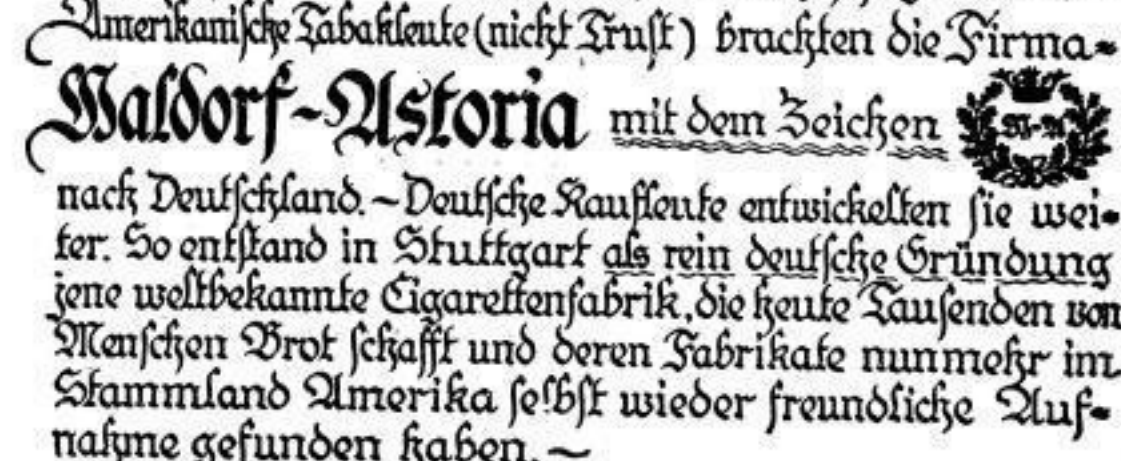 Amerikanische Tabakleute (nicht Trust) brachten die Firma-
Waldorf-Astoria mit dem Zeichen W-A
nach Deutschland. ~ Deutsche Kaufleute entwickelten sie wei-
ter. So entstand in Stuttgart als rein deutsche Gründung
jene weltbekannte Cigarettenfabrik, die heute Tausenden von
Menschen Brot schafft und deren Fabrikate nunmehr im
Stammland Amerika selbst wieder freundliche Auf-
nahme gefunden haben. ~